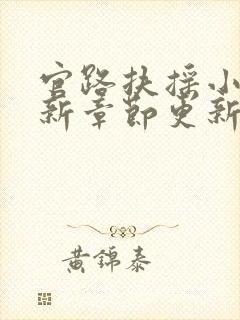 官路扶摇小
新章节更新
黄锦泰